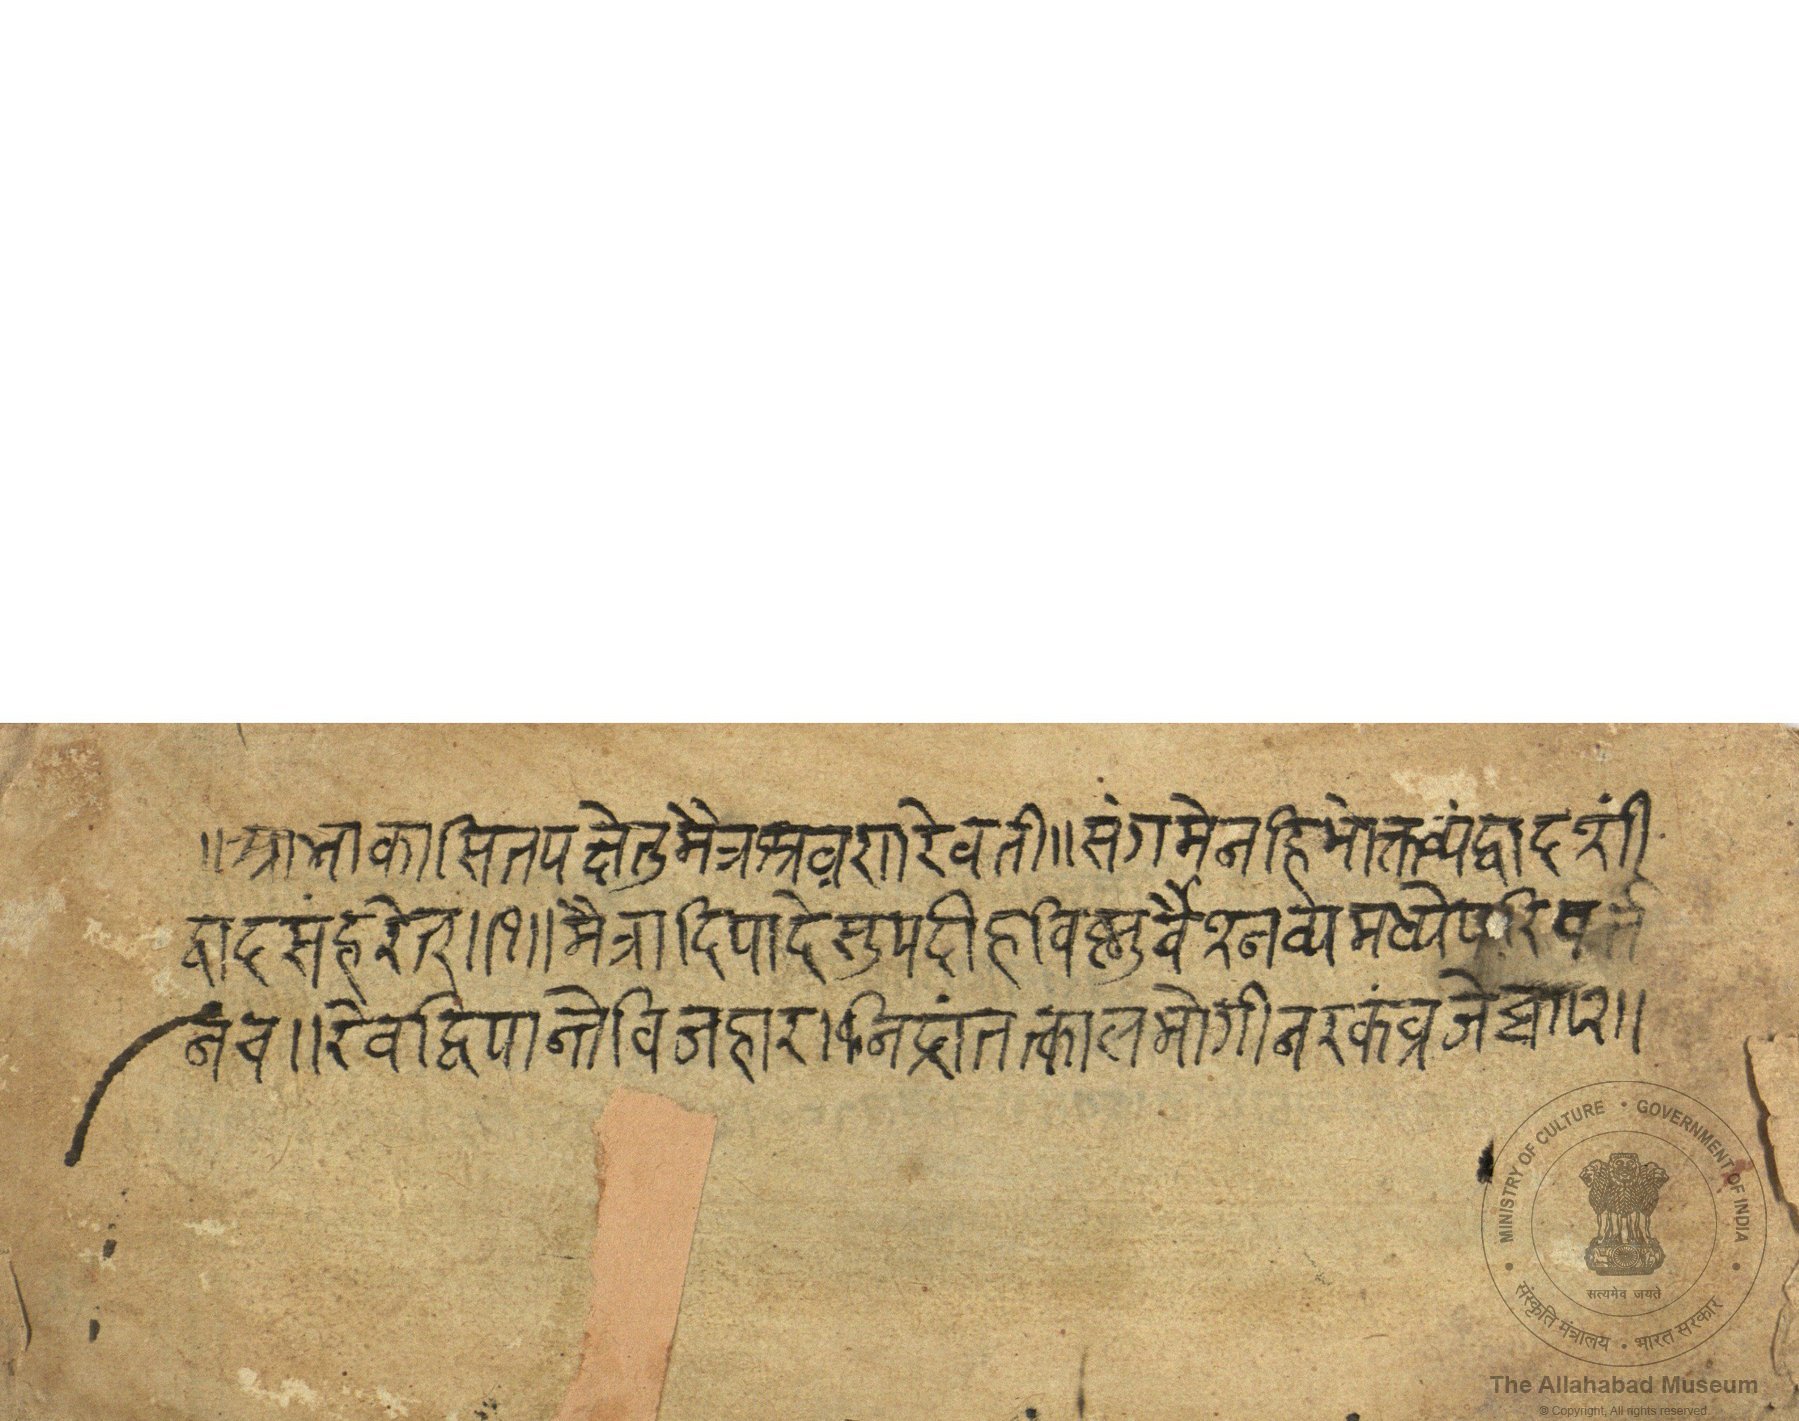 ॥आभाकासितपक्षेतुमैत्रश्रवणरेवती॥संगमेनहिभोक्तव्यंद्वादशीं
द्वादसंहरेत्॥१॥मैत्रादिपादेसुपदीहविष्णुर्वैश्नव्यमध्येपरिवर्त
नंच॥रेवद्विपान्तेविजहारनिद्रांतत्कालभोगीनरकंव्रजेद्वा२॥
MINISTRY OF CULTURE • GOVERNMENT OF INDIA
सत्यमेव जयते
संस्कृति मंत्रालय • भारत सरकार
The Allahabad Museum
© Copyright, All rights reserved